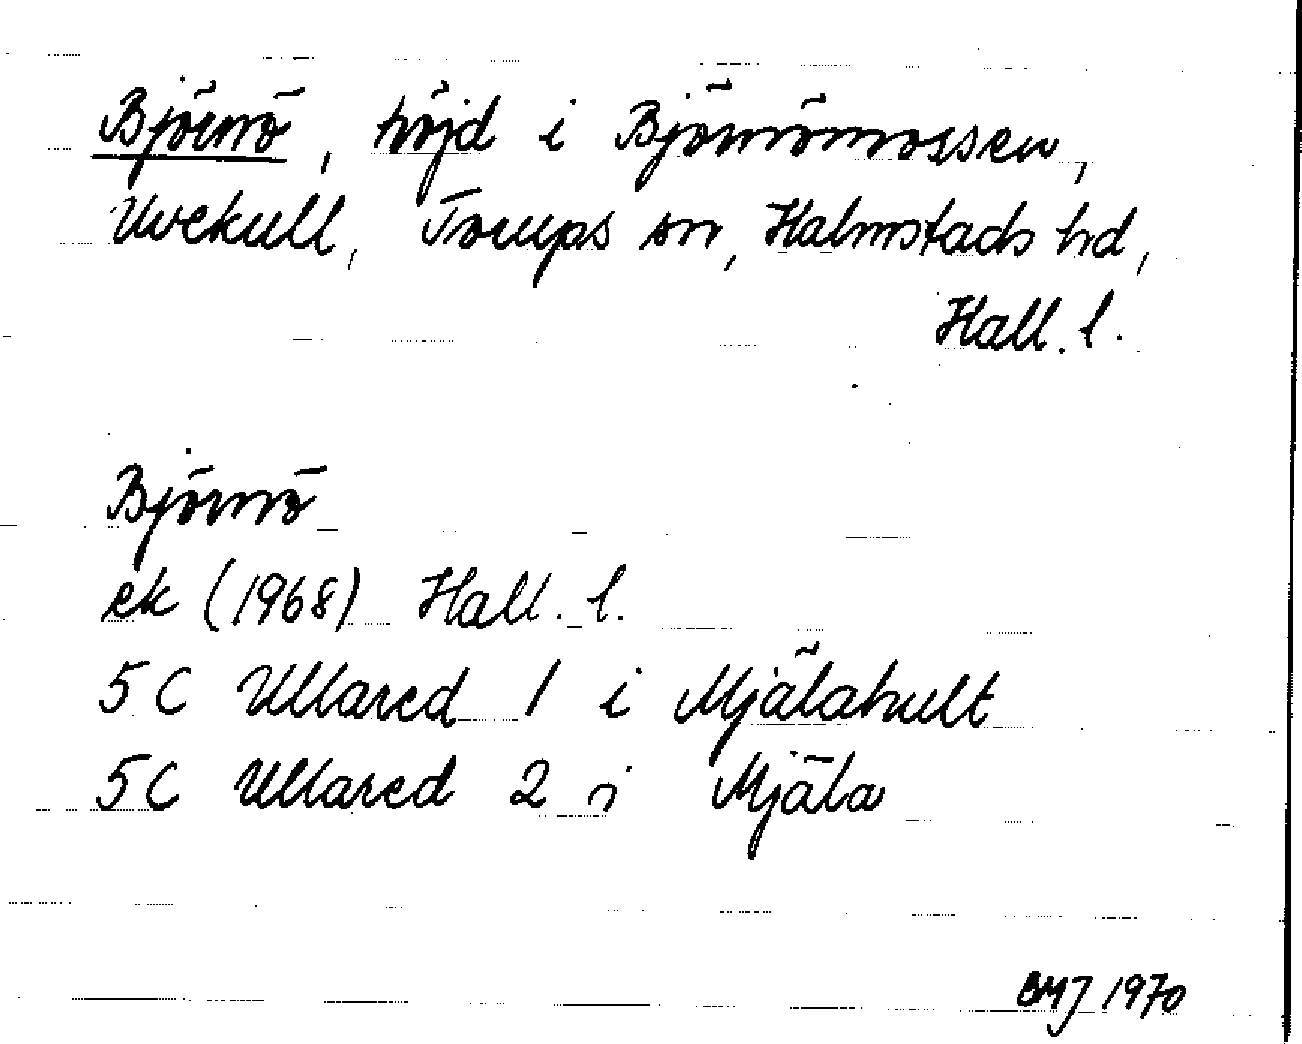 Björnö, höjd i Björnömossen,
Uvekull, Torups sn, Halmstads hd,
Hall. l.
Björnö
ek (1968) Hall. l.
5C Ullared 1 i Mjälahult
5C Ullared 2 i Mjäla
1970